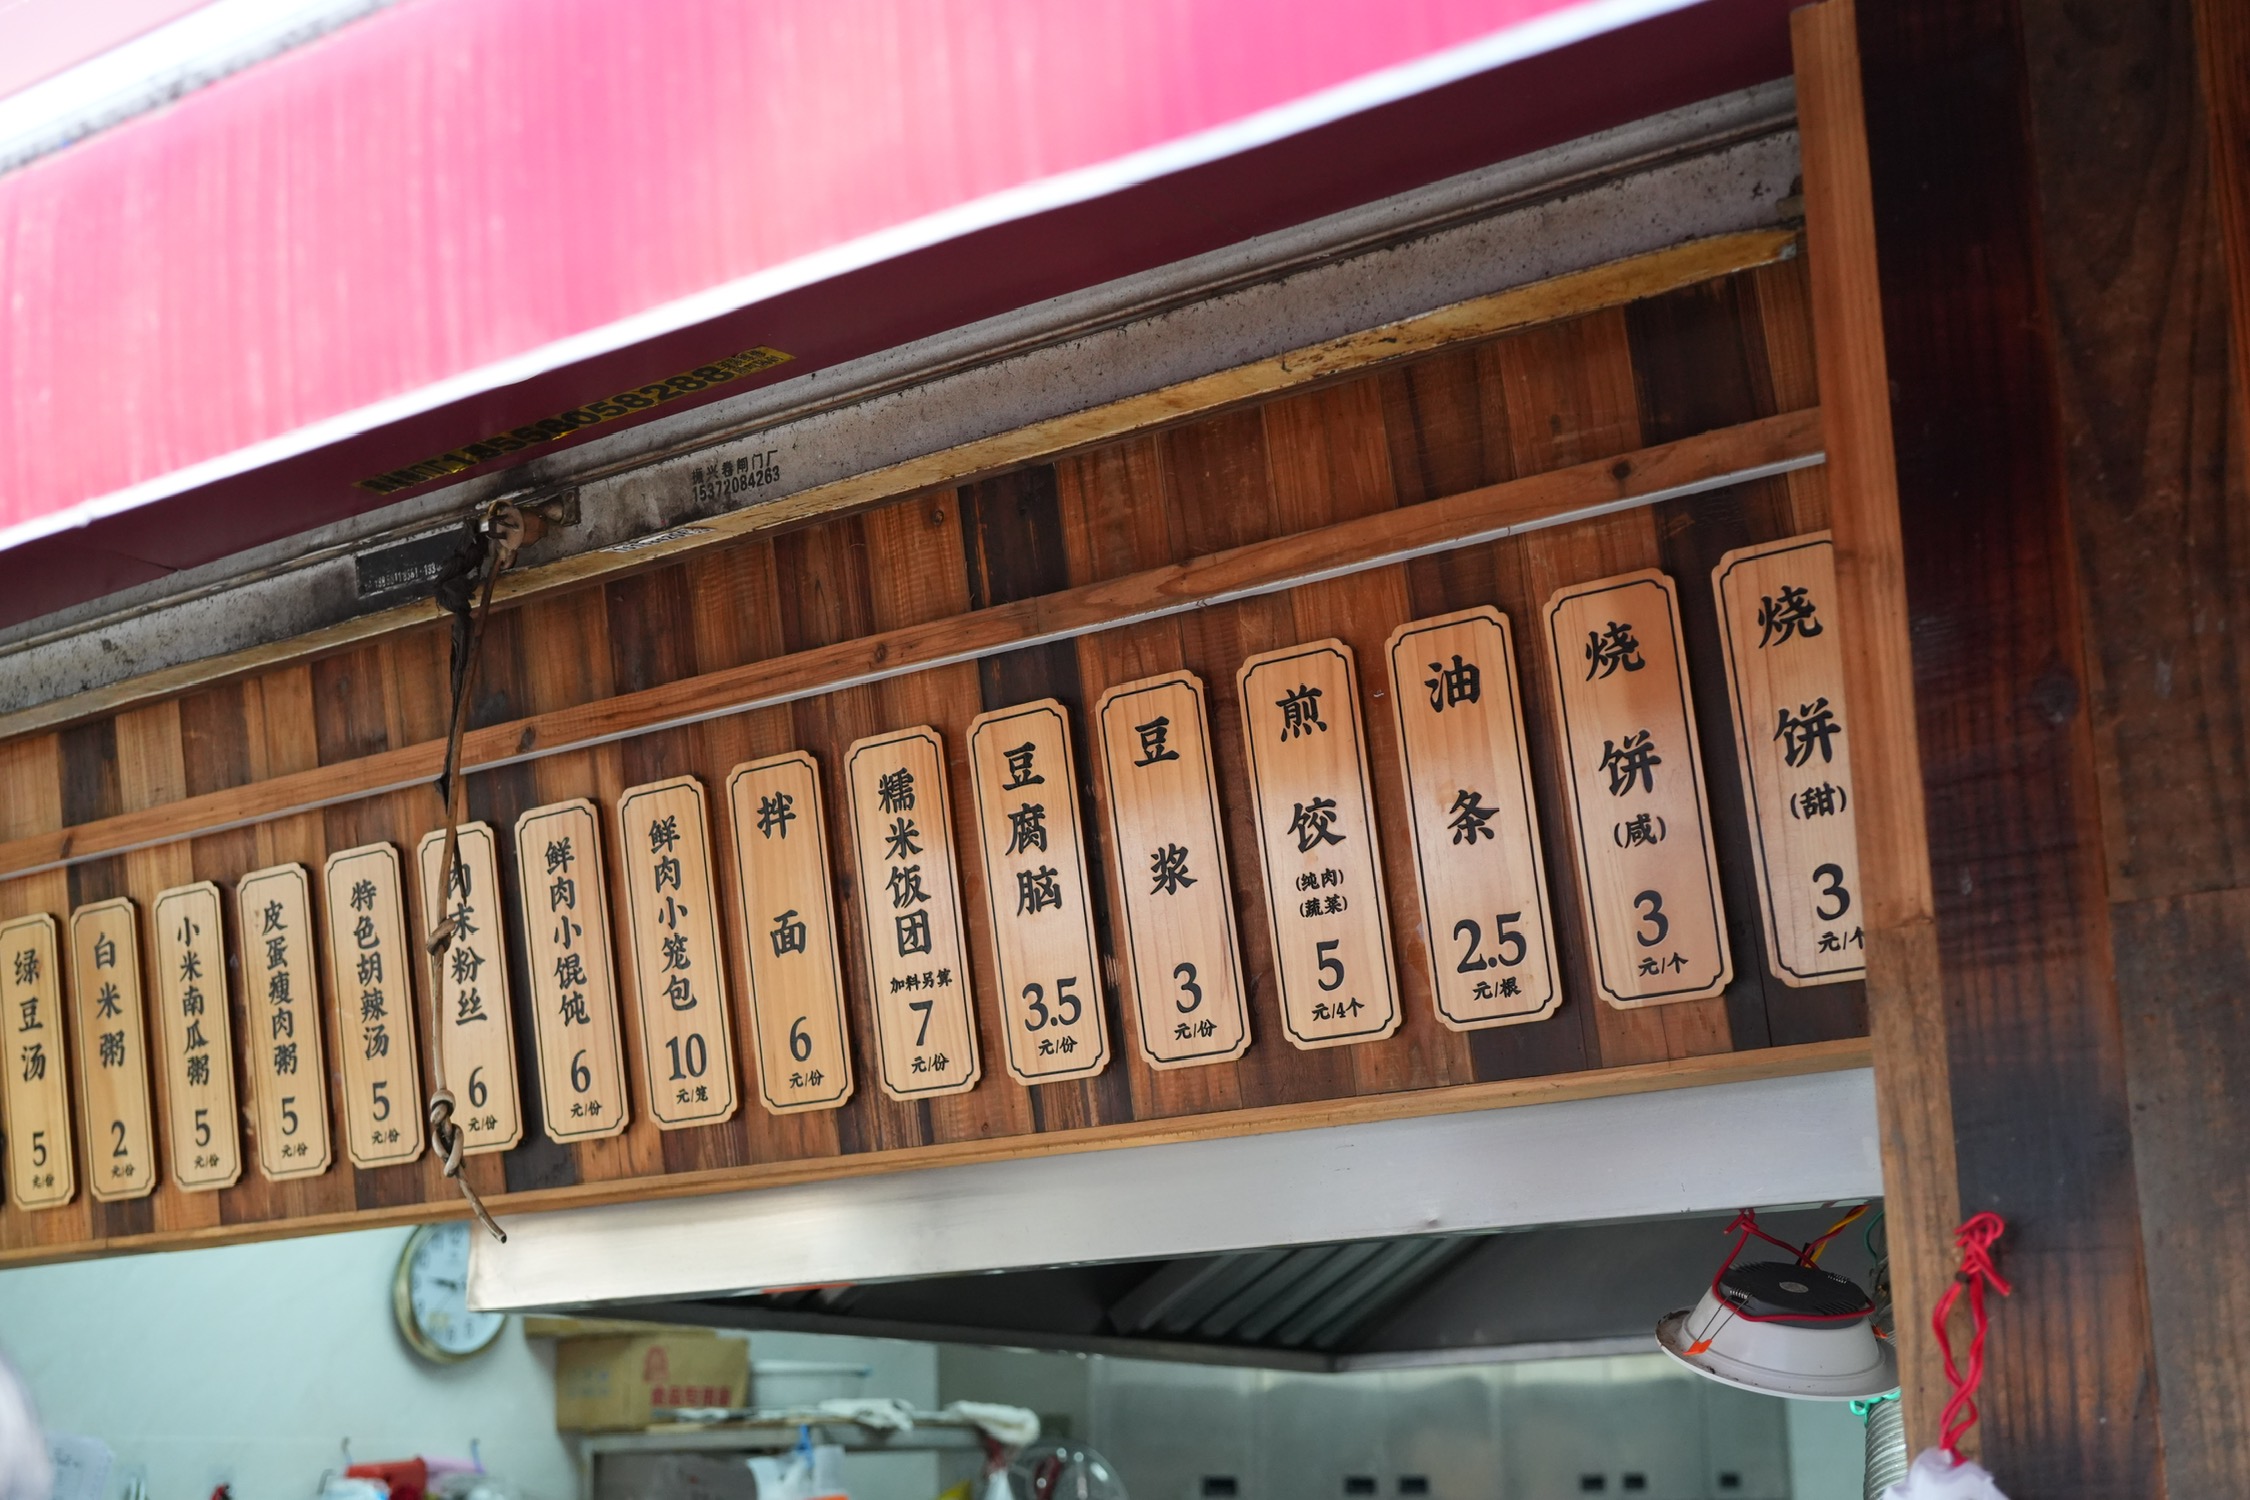 15372084263
振兴卷闸门厂
绿豆汤
5
元/份
白米粥
2
元/份
小米南瓜粥
5
元/份
皮蛋瘦肉粥
5
元/份
特色胡辣汤
5
元/份
肉末粉丝
6
元/份
鲜肉小馄饨
6
元/份
鲜肉小笼包
10
元/笼
拌面
6
元/份
糯米饭团
加料另算
7
元/份
豆腐脑
3.5
元/份
豆浆
3
元/份
煎饺
(纯肉)
(蔬菜)
5
元/4个
油条
2.5
元/根
烧饼
(咸)
3
元/个
烧饼
(甜)
3
元/个